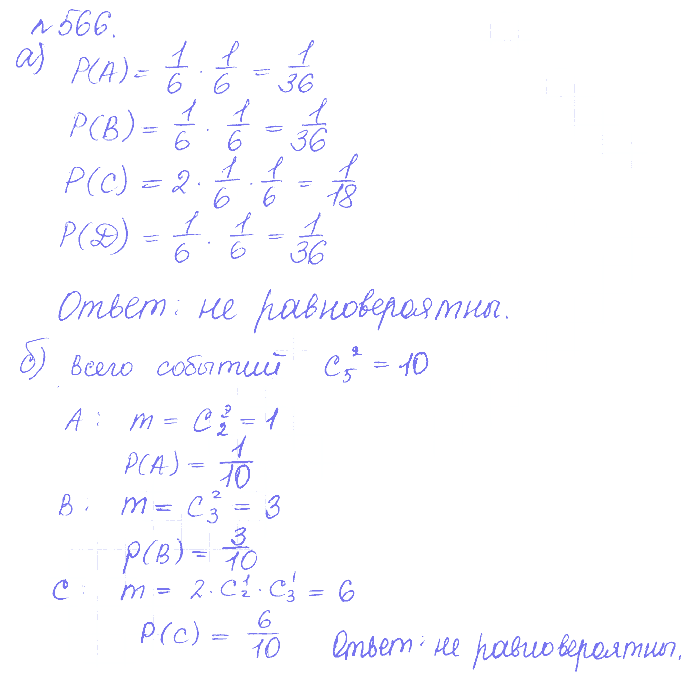 №566.
а) P(A) = 1/6 · 1/6 = 1/36
P(B) = 1/6 · 1/6 = 1/36
P(C) = 2 · 1/6 · 1/6 = 1/18
P(Д) = 1/6 · 1/6 = 1/36
Ответ: не равновероятны.
б) всего событий C₅² = 10
A: m = C₂² = 1
P(A) = 1/10
B: m = C₃² = 3
P(B) = 3/10
C: m = 2·C₂¹·C₃¹ = 6
P(C) = 6/10 Ответ: не равновероятны.